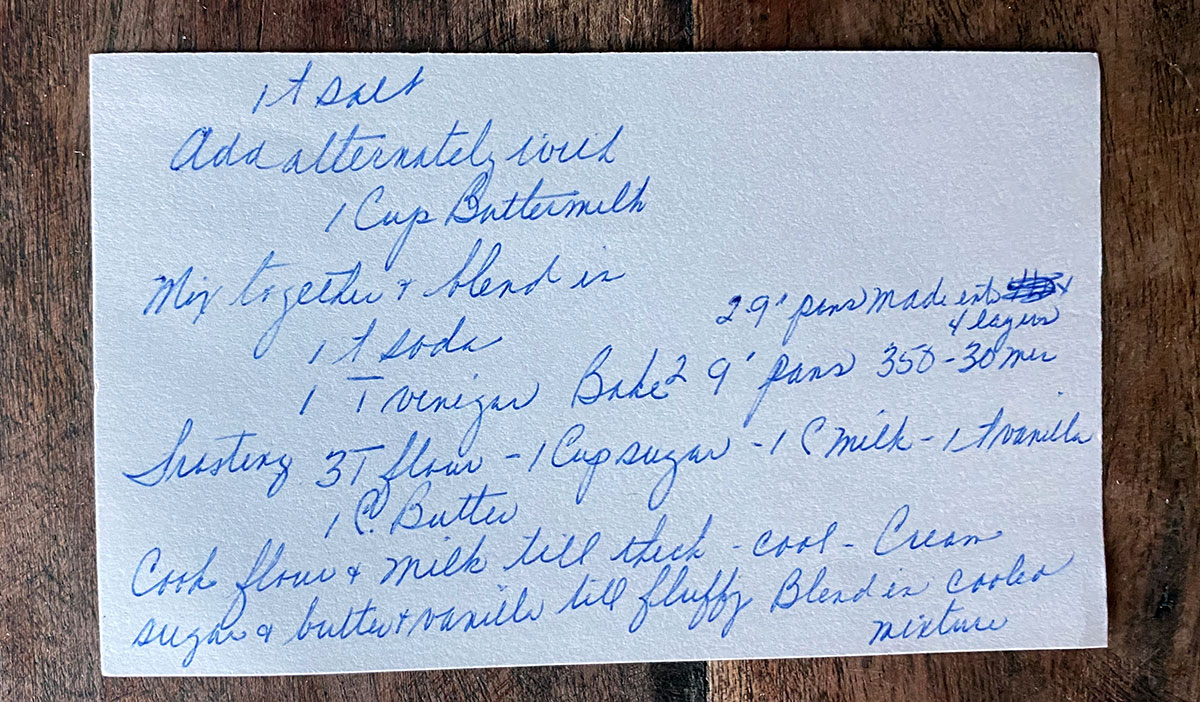 1 t salt
Add alternately with
1 Cup Buttermilk
Mix together & blend in
1 t soda
2 9" pans made into
4 layers
1 T vinigar Bake 2 9" pans 350 - 30 min
Frosting 3T flour - 1 Cup sugar - 1 C milk - 1 t vanilla
1 C. Butter
Cook flour & milk till thick - cool - Cream
sugar & butter & vanilla till fluffy Blend in cooled
mixture